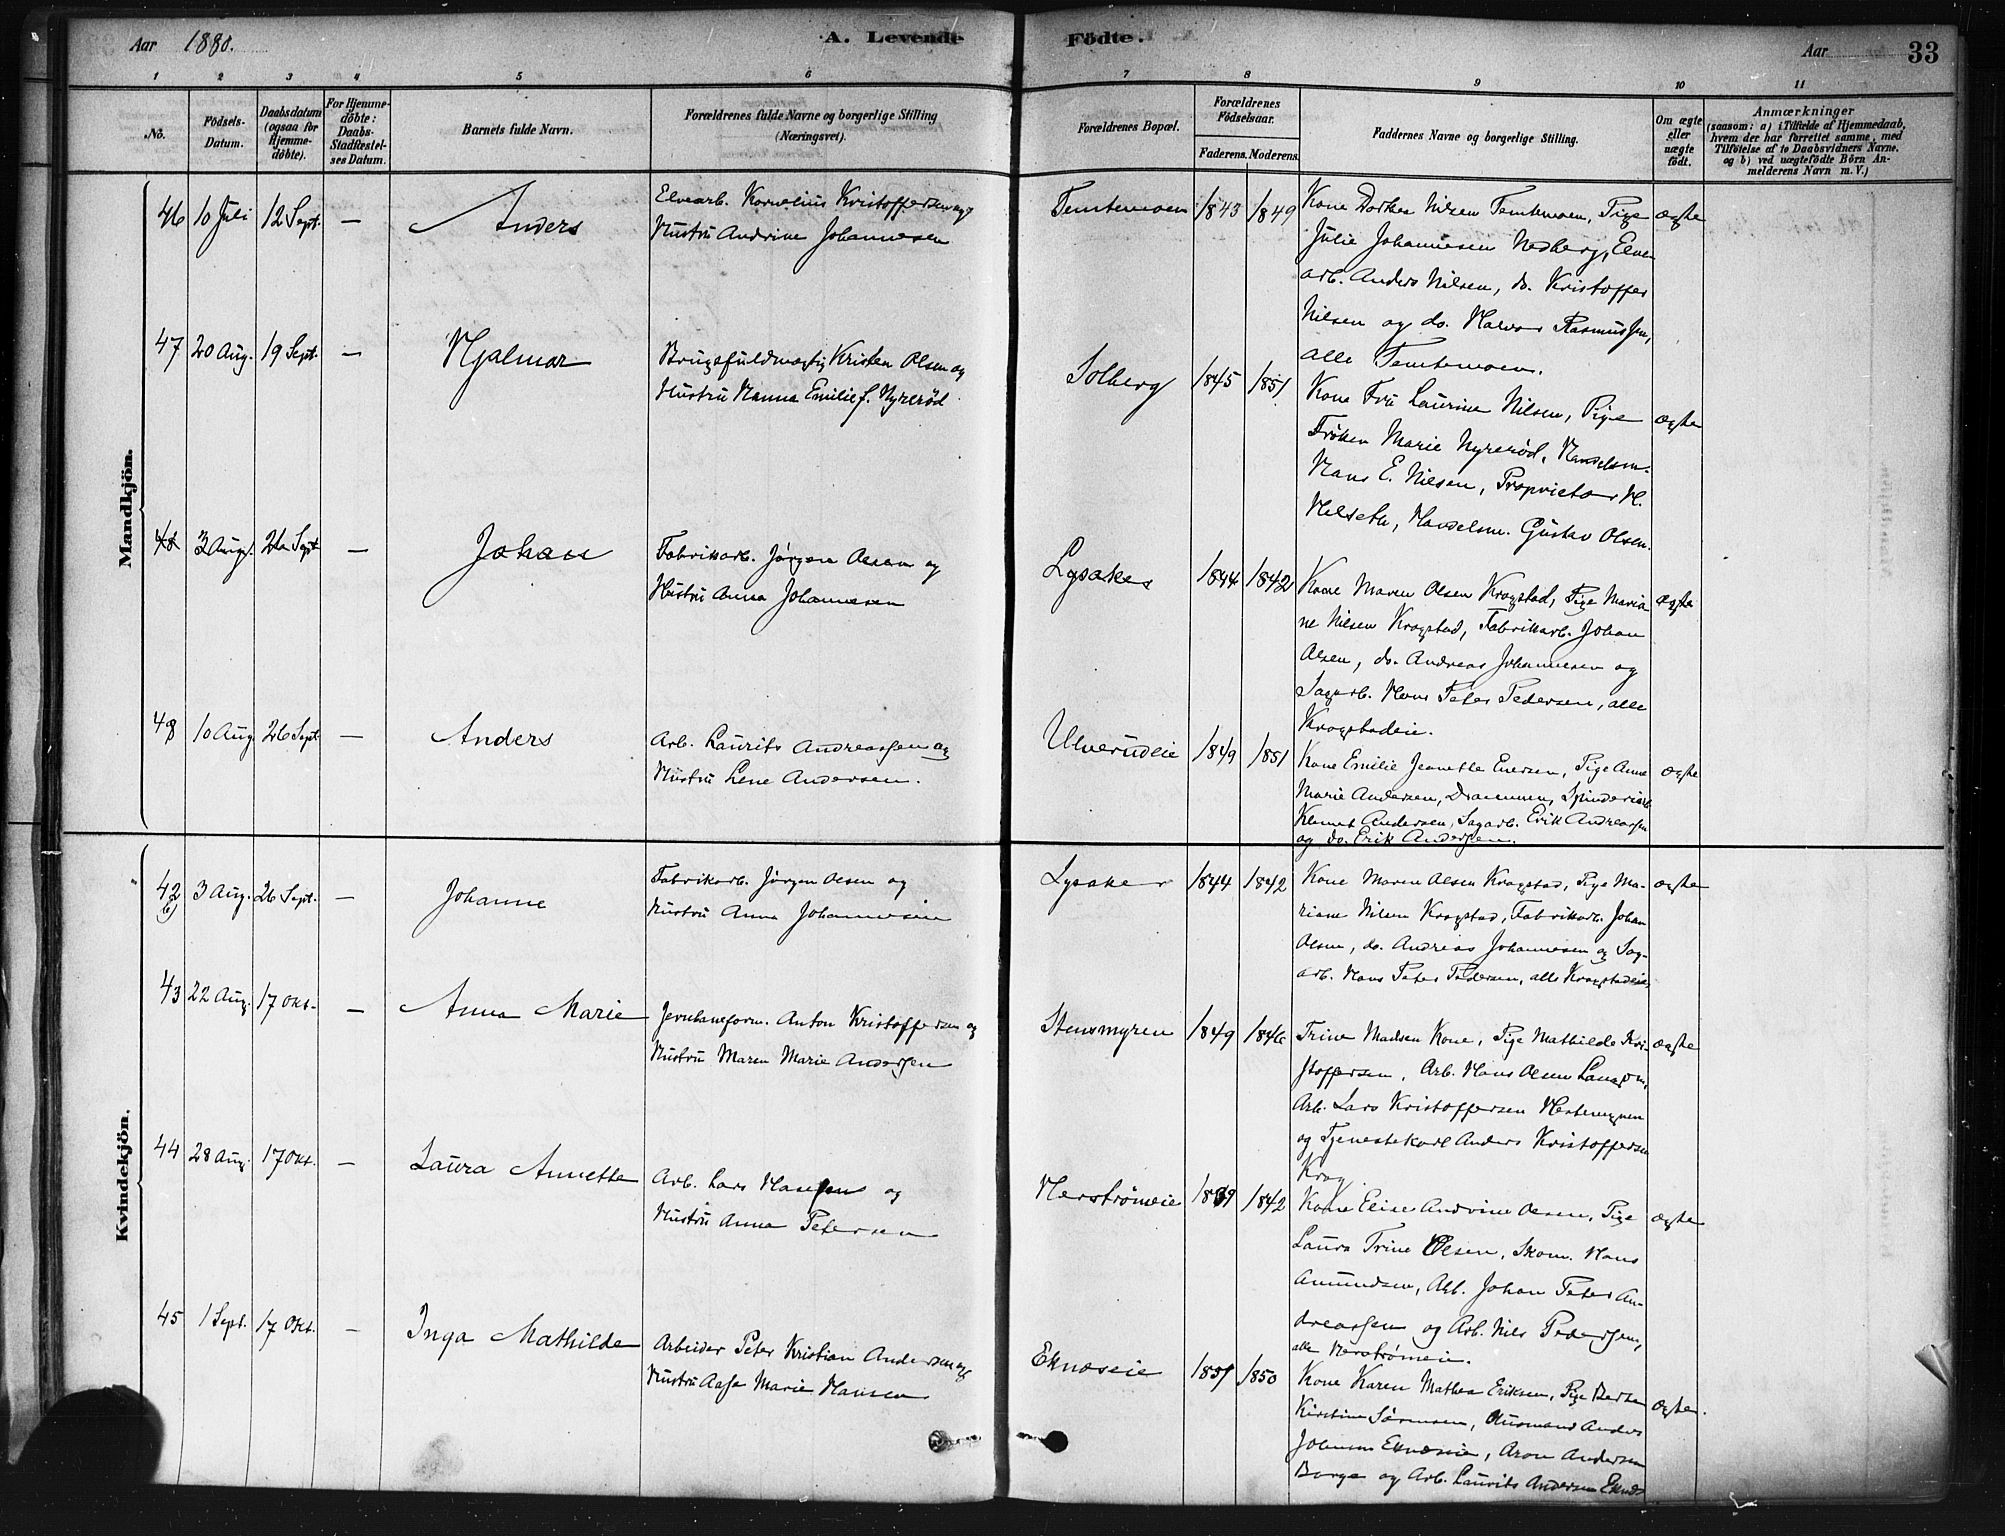 Aar 1880. A. Levende Födte. Aar 33
1 2 3 4 5 6 7 8 9 10 11
No.
Födsels-
Datum.
Daabsdatum
(ogsaa for
Hjemme-
döbte).
For Hjemme-
döbte:
Daabs-
Stadfæstel-
ses Datum.
Barnets fulde Navn.
Forældrenes fulde Navne og borgerlige Stilling
(Næringsvei).
Forældrenes Bopæl.
Forældrenes
Födselsaar.
Faderens. Moderens.
Faddernes Navne og borgerlige Stilling.
Om ægte
eller
uægte
födt.
Anmærkninger
(saasom: a) i Tilfælde af Hjemmedaab,
hvem der har forrettet samme, med
Tilföielse af to Daabsvidners Navne.
og b) ved uægtefödte Börn An-
melderens Navn m. V.)
Mandkjön.
46 10 Juli 12 Sept. — Anders
Elvearb. Kornelius Kristoffersen og
Hustru Andrine Johannesen
Temtemoen 1843 1849
Kone Dorthea Nilsen Temtemoen, Pige
Julie Johannesen Nedberg, Elve
arb. Anders Nilsen, do. Kristoffer
Nilsen og do. Halvor Rasmussen,
alle Temtemoen.
ægte
47 20 Aug. 19 Sept. — Hjalmar
Brugsfuldmægtig Kristen Olsen og
Hustru Hanna Emilie f. Nyrerød
Solberg 1845 1851
Kone Fru Laurine Nilsen, Pige
Frøken Marie Nyrerød, Handelsm.
Hans E. Nilsen, Proprietær H.
Helseth, Handelsm. Gustav Olsen.
ægte
48 3 Aug. 26 Sept — Johan
Fabrikarb. Jørgen Olsen og
Hustru Anna Johannesen
Lysaker 1844 1842
Kone Maren Olsen Krogstad, Pige Maria
ne Nilsen Krogstad, Fabrikarb. Johan
Olsen, do. Andreas Johannesen og
Sagarb. Hans Peter Pedersen, alle
Krogstadeie.
ægte
48 10 Aug 26 Sept. — Anders
Arb. Laurits Andreassen og
Hustru Lene Andersen.
Ulverudeie 1849 1851
Kone Emilie Jeanette Eversen, Pige Anne
Marie Andersen, Drammen, Spinderiarb
Klemet Andersen, Sagarb. Erik Andreassen
og do. Erik Andersen.
ægte
Kvindekjön.
42 b) 3 Aug. 26 Sept. — Johanne
Fabrikarb. Jørgen Olsen og
Hustru Anna Johannesen
Lysaker 1844 1842
Kone Maren Olsen Krogstad, Pige Ma-
riane Nilsen Krogstad, Fabrikarb. Johan
Olsen, do. Andreas Johannesen og Sag-
arb. Hans Peter Pedersen, alle Krogstadeie.
ægte
43 22 Aug. 17 Okt. — Anna Marie
Jernbaneform. Anton Kristoffersen og
Hustru Maren Marie Andersen
Stensmyren 1849 1846
Trine Madsen Kone, Pige Mathilde Kri-
stoffersen, Arb. Hans Olsen
Arb. Lars Kristoffersen
og Tjenestekarl Anders Kristoffersen
Krog.
ægte
44 28 Aug. 17 Okt. — Laura Annette
Arb. Lars Hansen og
Hustru Anna Petersen
Herstrømeie 1842
Kone Elise Andrine Olsen, Pige
Laura Trine Olsen, Skom. Hans
Amundsen, Arb. Johan Peter An-
dreassen og Arb. Nils Pedersen,
alle Herstrømeie.
ægte
45 1 Sept. 17 Okt. — Inga Mathilde
Arbeider Peter Kristian Andersen og
Hustru Aase Marie Hansen
Eknæseie 1851 1850
Kone Karen Mathea Eriksen, Pige
Kirstine Sørensen, Husmand Anders
Johannes Eknæseie, Aron Andersen
Borge og Arb. Laurits Andersen Eknæs
ægte.